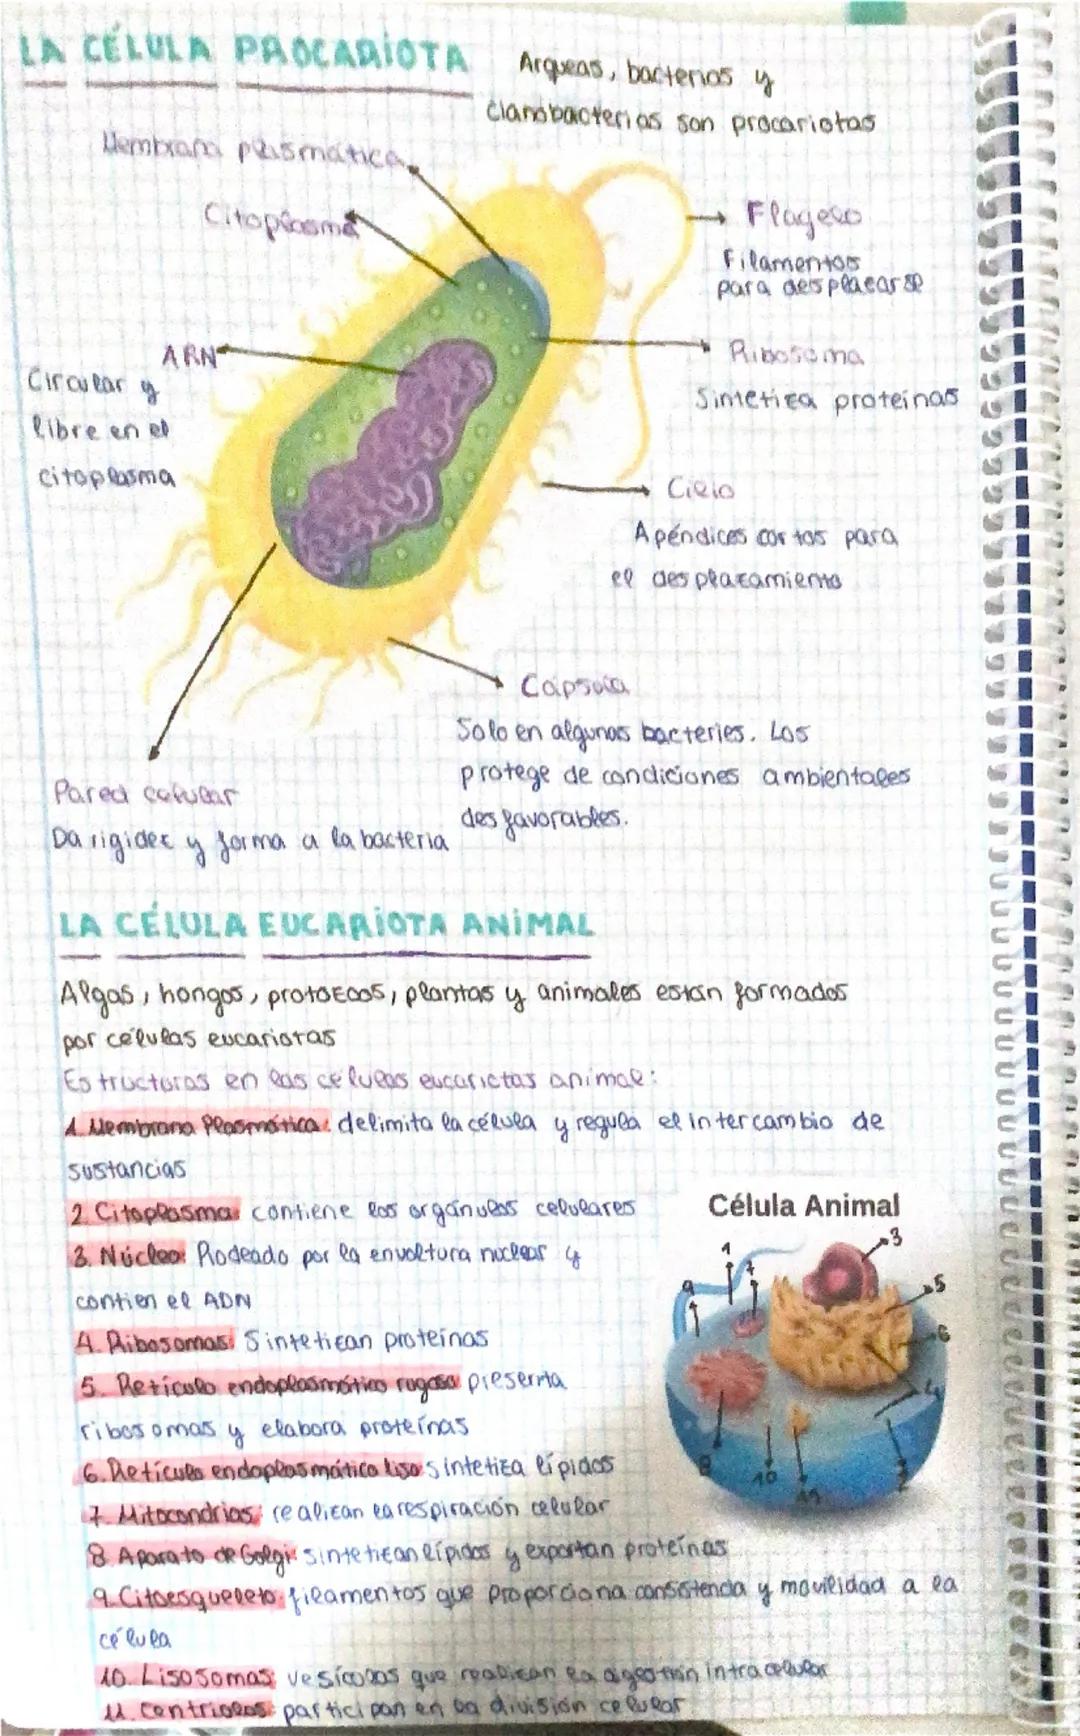 LA CÉLULA PROCARIOTA
Arqueas, bacterias y
cianobacterias son procariotas
Membrana plasmática
Citoplasma
Flagelo
Filamentos
para desplazarse
ARN
Circular y
libre en el
citoplasma
Ribosoma
Sintetiza proteínas
Cilio
Apéndices cortos para
el desplazamiento
Capsula
Solo en algunas bacteries. Los
protege de condiciones ambientales
desfavorables.
Pared celular
Da rigidez y forma a la bacteria
LA CÉLULA EUCARIOTA ANIMAL
Algas, hongos, protozoos, plantas y animales están formados
por células eucariotas
Estructuras en las células eucariotas animal:
1. Membrana Plasmática: delimita la célula y regula el intercambio de
sustancias
2. Citoplasma: contiene los orgánulos celulares
3. Núcleo: Rodeado por la envoltura nuclear y
contien el ADN
4. Ribosomas: Sintetizan proteínas
5. Retículo endoplasmático rugoso presenta
ribosomas y elabora proteínas
6. Retículo endoplasmático liso sintetiza lípidos
7. Mitocondrias: realizan la respiración celular
8. Aparato de Golgi: sintetizan lípidos y exportan proteínas
9. Citoesqueleto: filamentos que proporciona consistencia y movilidad a la
célula
10. Lisosomas: vesículas que realizan la digestión intracelular
11. Centriolos: participan en la división celular
Célula Animal
1
3
7
9
5
6
4
8
10
11
2